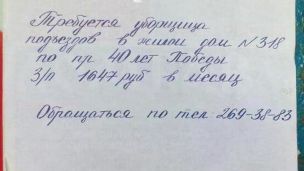 Требуется уборщица
подъездов в жилой дом N 318
по пр 40 лет Победы
З/п 1647 руб в месяц
Обращаться по тел 269-38-83